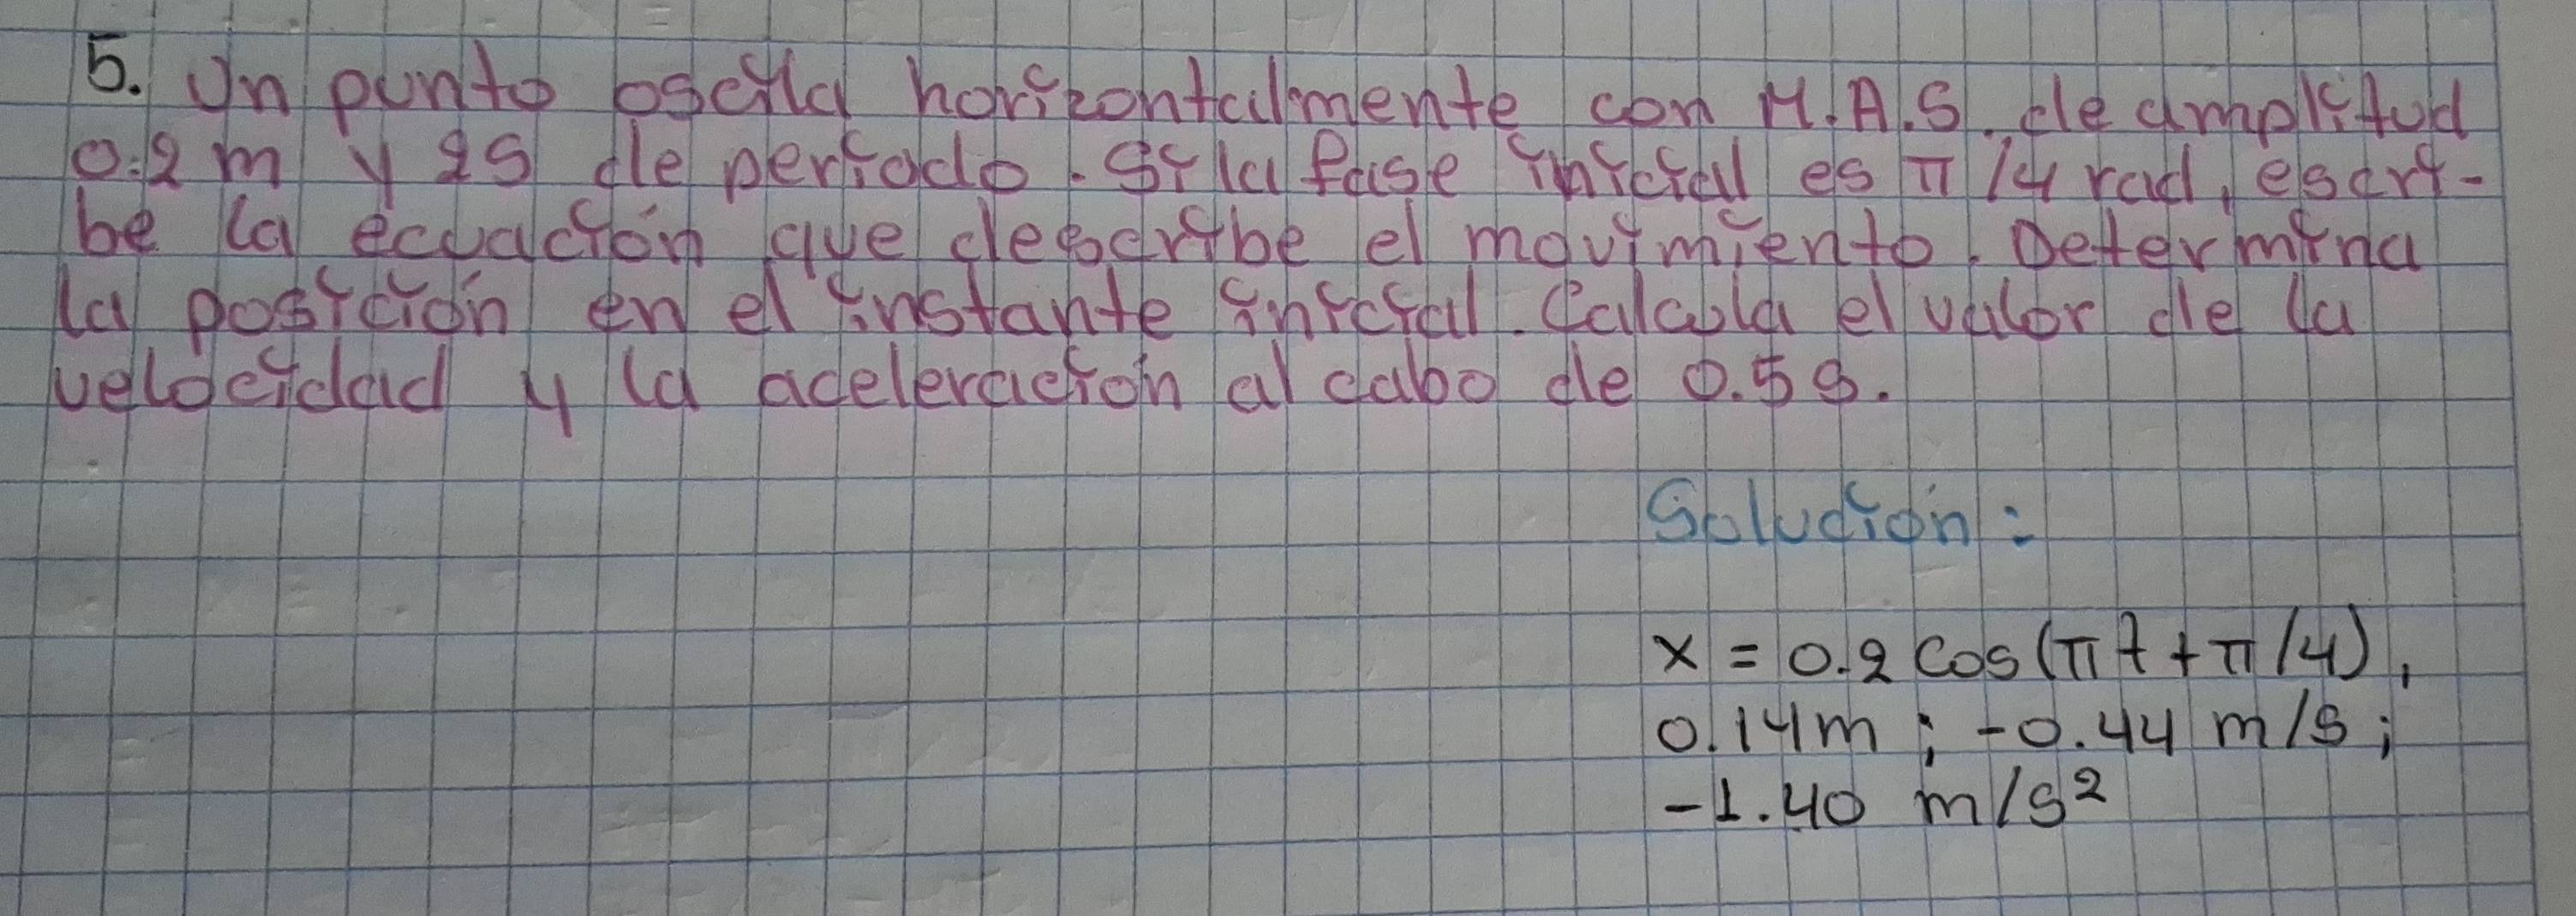 5. Un punto oscila horizontalmente con M.A.S. de amplitud
0.2 m y 2s de periodo. Si la fase inicial es π/4 rad, escri-
be la ecuación que describe el movimiento. Determina
la posición en el instante inicial. Calcula el valor de la
velocidad y la aceleración al cabo de 0.5s.
Solución:
x = 0.2 cos(πt + π/4),
0.14m ; -0.44 m/s ;
-1.40 m/s²